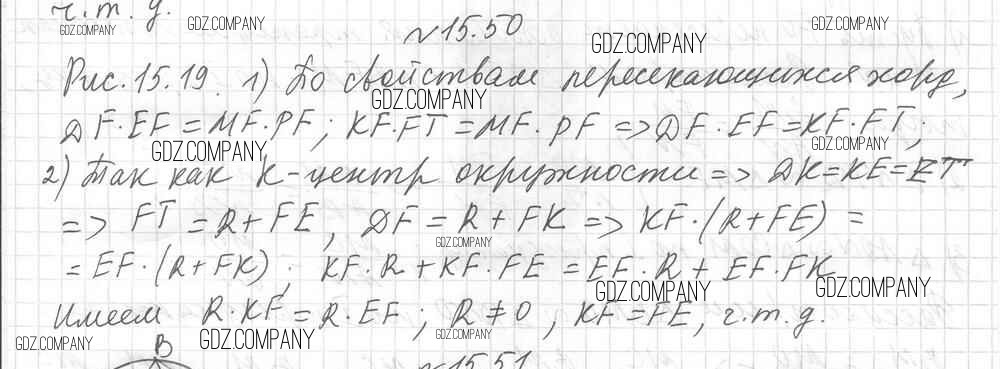 ч.т.д.
GDZ.COMPANY GDZ.COMPANY GDZ.COMPANY
№15.50
GDZ.COMPANY
Рис. 15.19. 1) По свойствам пересекающихся хорд,
GDZ.COMPANY
DF·EF = MF·PF; KF·FT = MF·PF => DF·EF = KF·FT;
GDZ.COMPANY GDZ.COMPANY
2) Так как K-центр окружности => DK=KE=ET
=> FT = R+FE, DF = R+FK => KF·(R+FE) =
GDZ.COMPANY
= EF·(R+FK); KF·R+KF·FE = EF·R + EF·FK
GDZ.COMPANY GDZ.COMPANY
Имеем R·KF = R·EF; R≠0, KF=FE, ч.т.д.
GDZ.COMPANY GDZ.COMPANY GDZ.COMPANY
B
№15.51